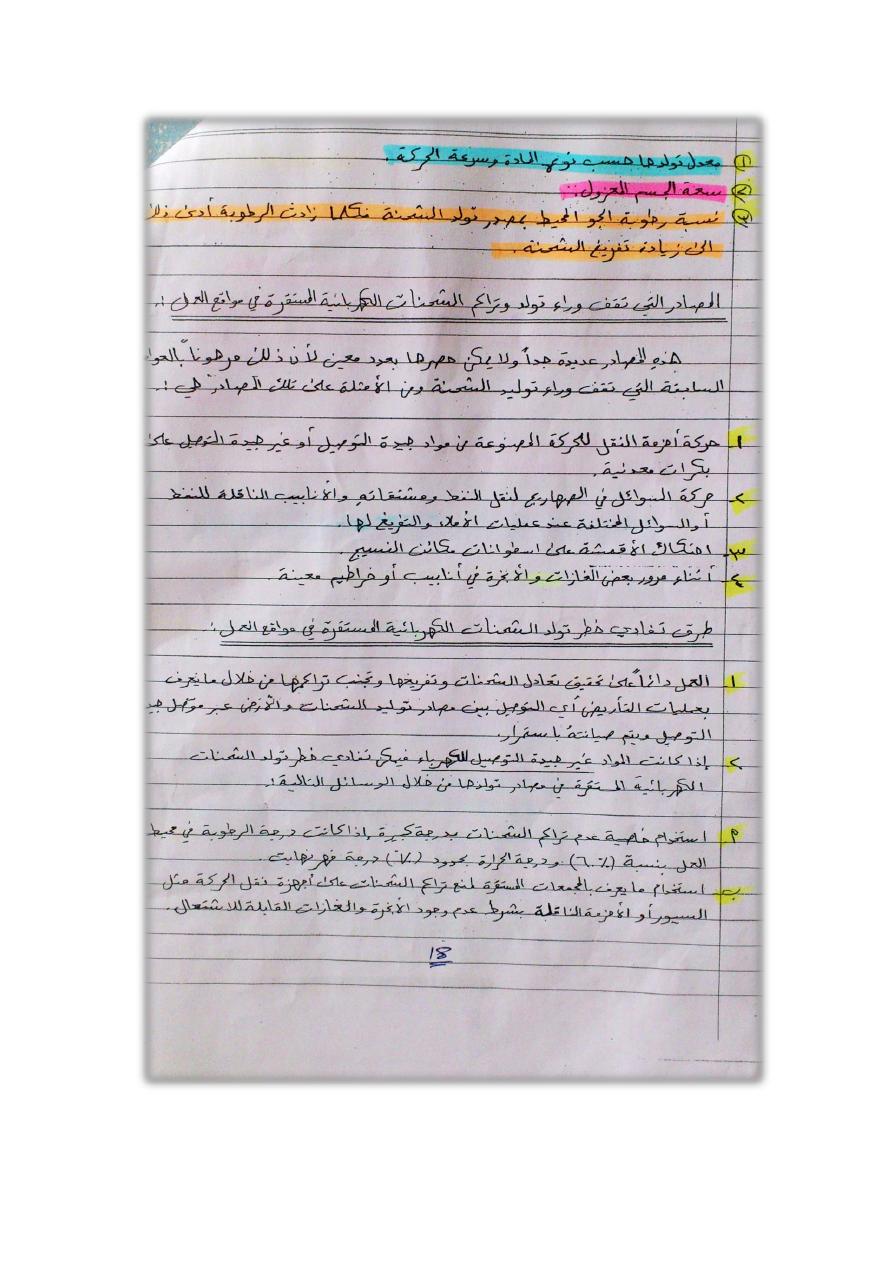 ① معدل تولدها حسب نوع المادة وسرعة الحركة .
② سعة الجسم المعزول .
③ نسبة رطوبة الجو المحيط بمصدر تولد الشحنة فكلما زادت الرطوبة أدى
الى زيادة تفريغ الشحنه .
المصادر التي تقف وراء تولد وتراكم الشحنات الكهربائية المستقرة في مواقع العمل :.
هذه المصادر عديدة جداً ولا يمكن حصرها بعدد معين لأن ذلك مرهوناً
السابقة التي تقف وراء توليد الشحنة ومن الأمثلة على تلك المصادر هي :.
١. حركة أحزمة النقل للحركة المصنوعة من مواد جيدة التوصيل أو غير جيدة التوصيل على
بكرات معدنية .
٢. حركة السوائل في الصهاريج لنقل النفط ومشتقاته والأنابيب الناقلة للنفط
أو السوائل المختلفة عند عمليات الأملاء والتفريغ لها .
٣. احتكاك الأقمشة على اسطوانات مكائن النسيج .
٤. أثناء مرور بعض الغازات والأبخرة في أنابيب أو خراطيم معينة .
طرق تفادي خطر تولد الشحنات الكهربائية المستقرة في مواقع العمل :.
١. العمل دائماً على تحقيق تعادل الشحنات وتفريغها وتجنب تراكمها من خلال ما يعرف
بعمليات التأريض أي التوصيل بين مصادر توليد الشحنات والأرض عبر موصل
التوصيل ويتم صيانته باستمرار .
٢. إذا كانت المواد غير جيدة التوصيل للكهرباء فيمكن تفادي خطر تولد الشحنات
الكهربائية المستقرة في مصادر تولدها من خلال الوسائل التالية :.
أ. استخدام خاصية عدم تراكم الشحنات بدرجة كبيرة إذا كانت درجة الرطوبة في محيط
العمل بنسبة (٦٠٪) ودرجة الحرارة بحدود درجة فهرنهايت .
ب. استخدام ما يعرف بالمجمعات المستقرة لمنع تراكم الشحنات على أجهزة نقل الحركة مثل
السيور أو الأحزمة الناقلة بشرط عدم وجود الأبخرة والغازات القابلة للاشتعال .
18